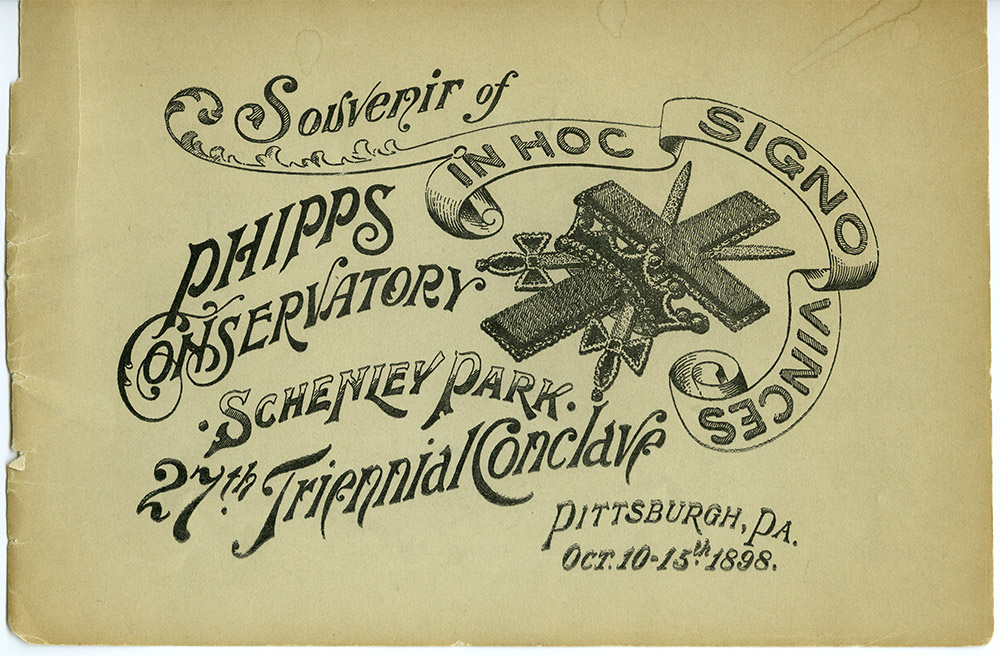 Souvenir of
IN HOC SIGNO VINCES
PHIPPS
CONSERVATORY
·SCHENLEY PARK.
27th Triennial Conclave
PITTSBURGH, PA.
OCT. 10-15th 1898.